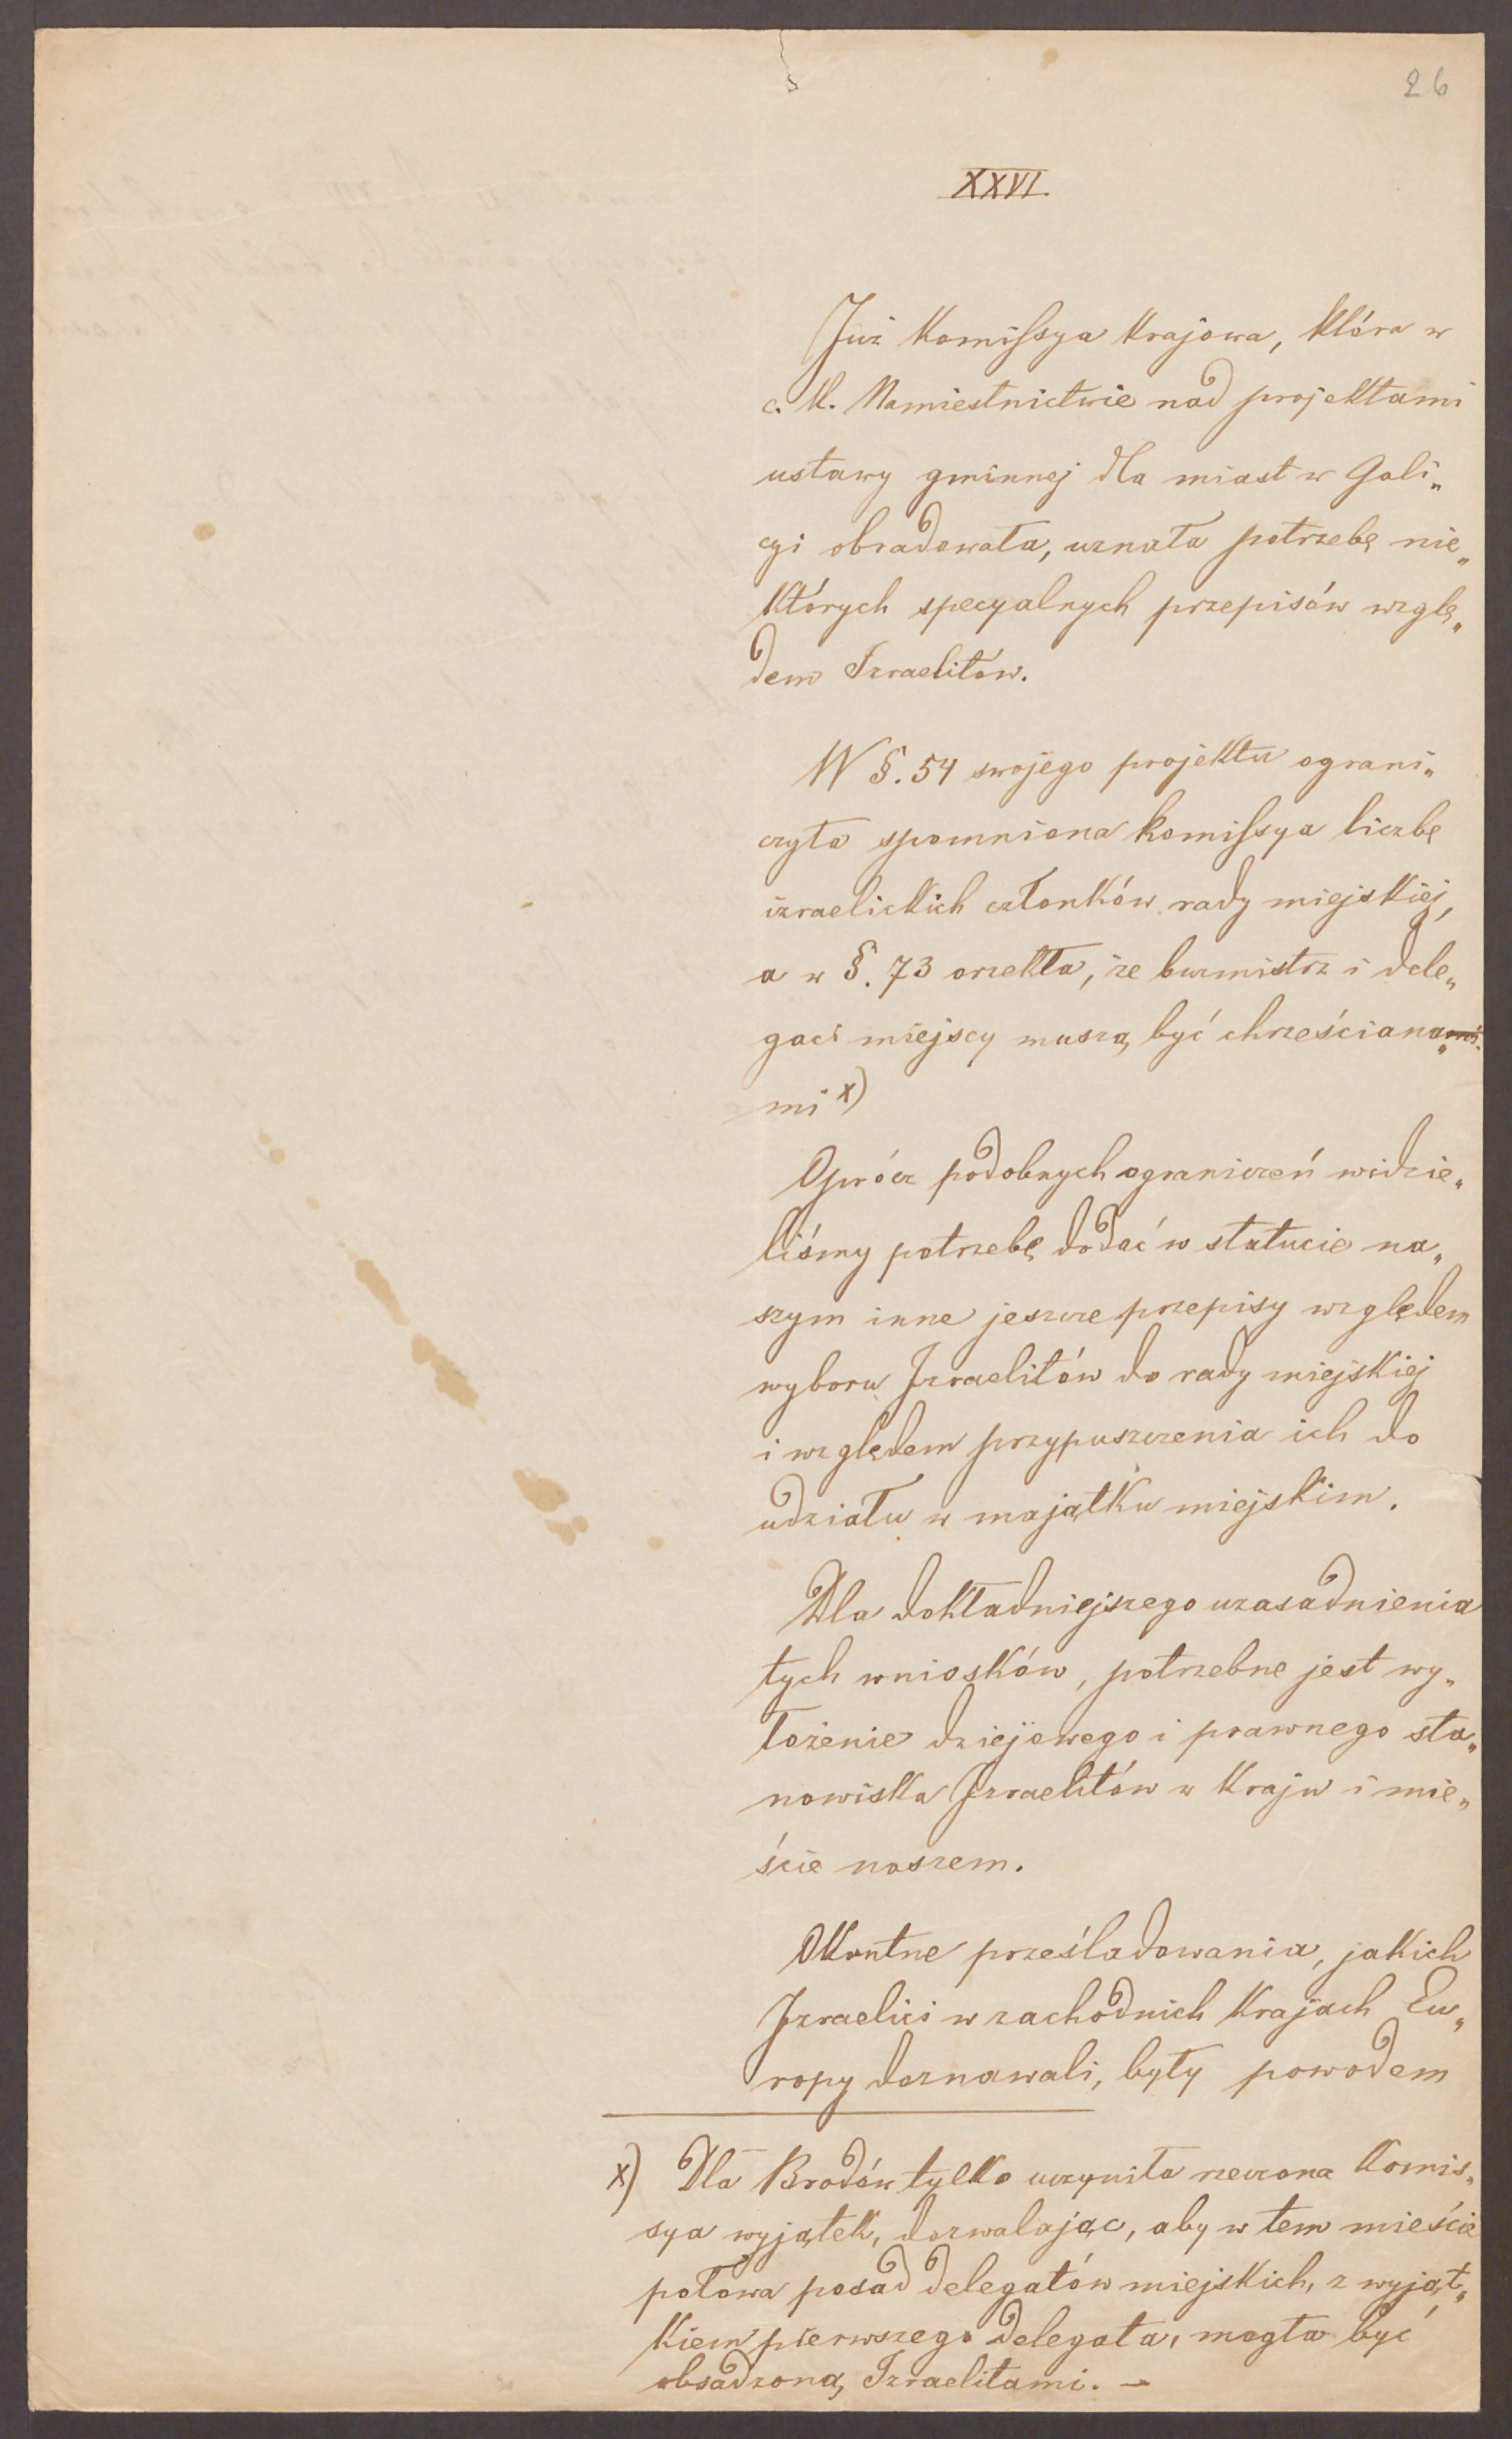 26
XXVI.
Już Komissya Krajowa, która w
c. K. Namiestnictwie nad projektami
ustawy gminnej dla miast w Gali„
cyi obradowała, uznała potrzebę nie„
których specyalnych przepisów wzglę„
dem Izraelitów.
W §. 54 swojego projektu ograni„
czyła spomniona komissya liczbę
izraelickich członków rady miejskiej,
a w §. 73 orzekła, że burmistrz i dele„
gaci miejscy muszą być chrześciana„
mi x)
Oprócz podobnych ograniczeń widzie„
liśmy potrzebę dodać w statucie na„
szym inne jeszcze przepisy względem
wyboru Izraelitów do rady miejskiej
i względem przypuszczenia ich do
udziału w majątku miejskim.
Dla dokładniejszego uzasadnienia
tych wniosków, potrzebne jest wy„
łożenie dziejowego i prawnego sta„
nowiska Izraelitów w Kraju i mie„
ście naszem.
Okrutne prześladowania, jakich
Izraelici w zachodnich Krajach Eu„
ropy doznawali, były powodem
x) Dla Brodów tylko uczyniła rzeczona Komis„
sya wyjątek, dozwalając, aby w tem mieście
połowa posad delegatów miejskich, z wyjąt„
kiem pierwszego delegata, mogła być
obsadzoną Izraelitami. –